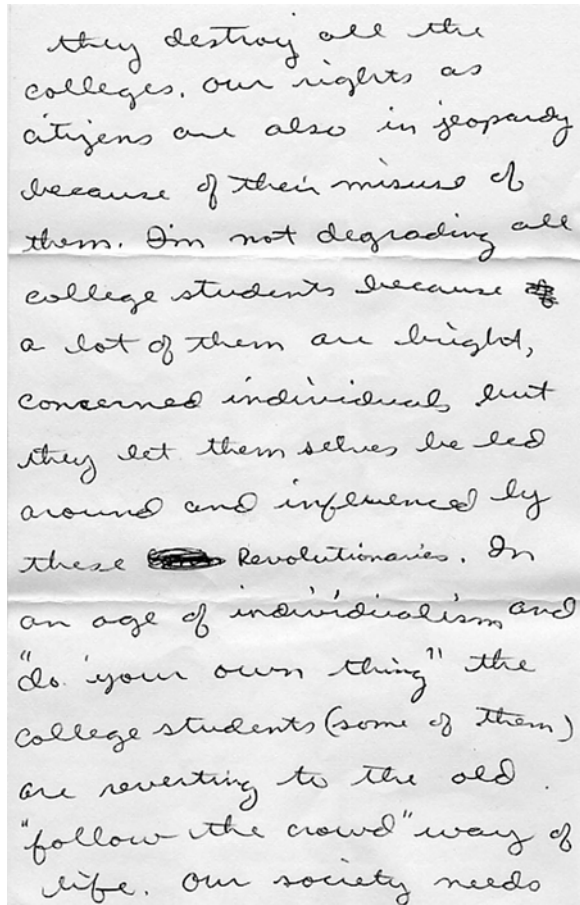 they destroy all the
colleges. Our rights as
citizens are also in jeopardy
because of their misuse of
them. I'm not degrading all
college students because
a lot of them are bright,
concerned individuals but
they let them selves be led
around and influenced by
these Revolutionaries. In
an age of individualism and
"do your own thing" the
college students (some of them)
are reverting to the old
"follow the crowd" way of
life. Our society needs